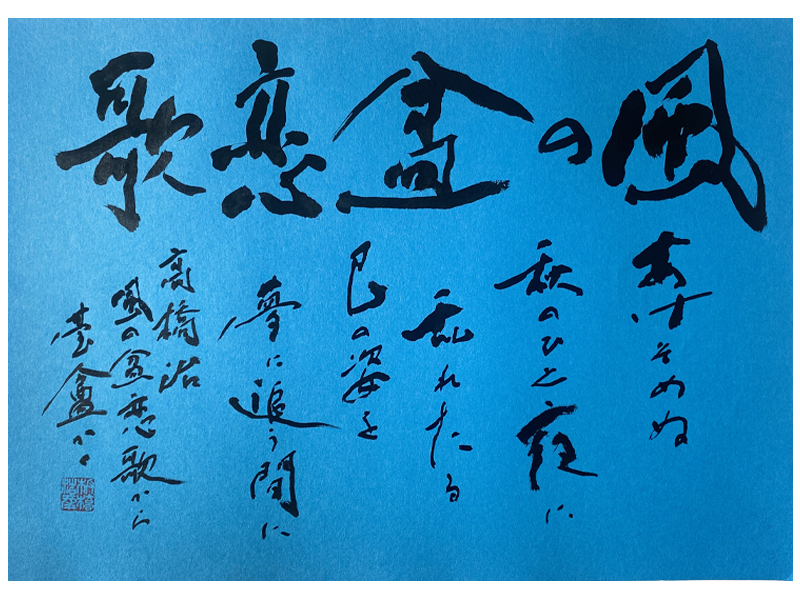 風の盆恋歌
あけそめぬ
秋のひと夜に
乱れたる
の姿を
夢に追う間に
高橋治
風の盆恋歌から